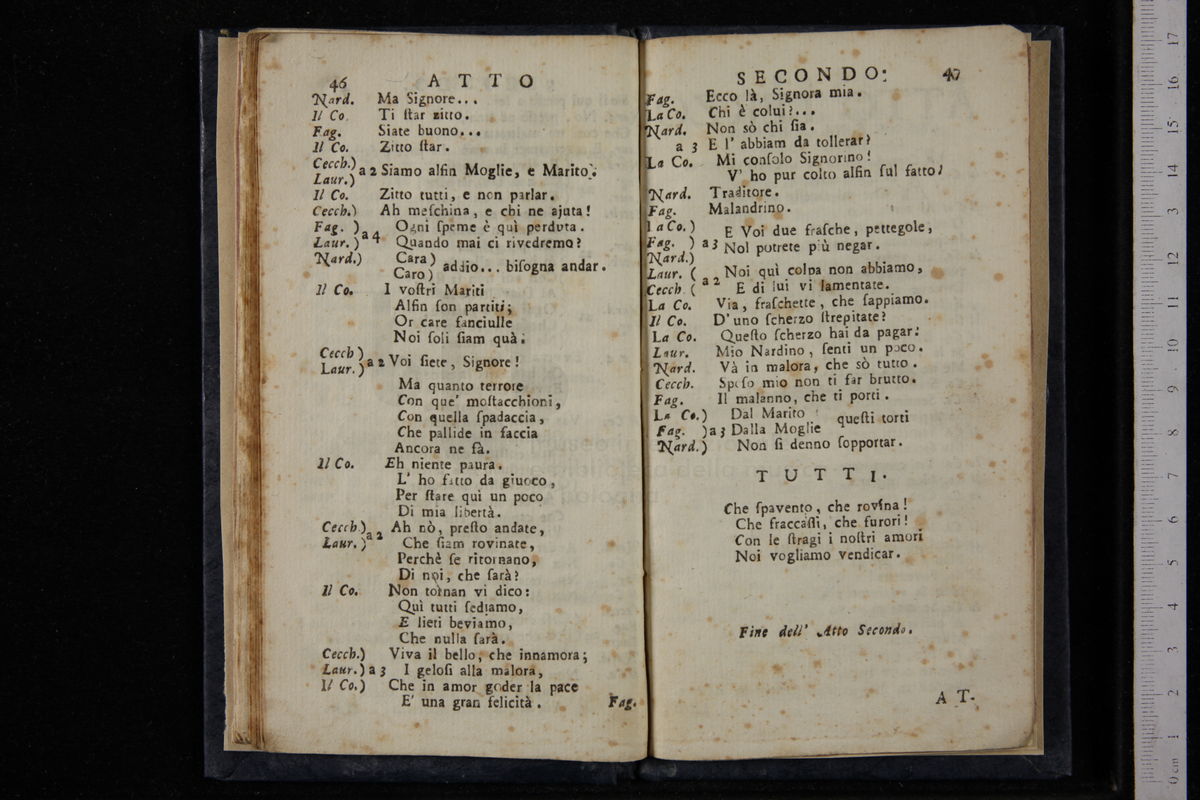 46 ATTO
Nard. Ma Signore...
Il Co. Ti ſtar zitto.
Fag. Siate buono...
Il Co. Zitto ſtar.
Cecch.)
Laur.) a 2 Siamo alfin Moglie, e Marito:
Il Co. Zitto tutti, e non parlar.
Cecch.) Ah meſchina, e chi ne ajuta!
Fag. ) Ogni ſpeme è quì perduta.
Laur. ) a 4 Quando mai ci rivedremo?
Nard.) Cara )
Caro ) addio... biſogna andar.
Il Co. I voſtri Mariti
Alfin ſon partiti;
Or care fanciulle
Noi ſoli ſiam quà:
Cecch )
Laur. ) a 2 Voi ſiete, Signore!
Ma quanto terrore
Con que' moſtacchioni,
Con quella ſpadaccia,
Che pallide in faccia
Ancora ne fà.
Il Co. Eh niente paura.
L' ho fatto da giuoco,
Per ſtare quì un poco
Di mia libertà.
Cecch.) Ah nò, preſto andate,
Laur. ) a 2 Che ſiam rovinate,
Perchè ſe ritornano,
Di noi, che ſarà?
Il Co. Non tornan vi dico:
Quì tutti ſediamo,
E lieti beviamo,
Che nulla ſarà.
Cecch.) Viva il bello, che innamora;
Laur.) a 3 I geloſi alla malora,
Il Co.) Che in amor goder la pace
E' una gran felicità.
Fag.
SECONDO: 47
Fag. Ecco là, Signora mia.
La Co. Chi è colui?...
Nard. Non sò chi ſia.
a 3 E l' abbiam da tollerar?
La Co. Mi conſolo Signorino!
V' ho pur colto alfin ſul fatto!
Nard. Traditore.
Fag. Malandrino.
La Co.) E Voi due fraſche, pettegole,
Fag. ) a 3 Nol potrete più negar.
Nard.)
Laur. ( Noi quì colpa non abbiamo,
Cecch. ( a 2 E di lui vi lamentate.
La Co. Via, fraſchette, che ſappiamo.
Il Co. D' uno ſcherzo ſtrepitate?
La Co. Queſto ſcherzo hai da pagar:
Laur. Mio Nardino, ſenti un poco.
Nard. Và in malora, che sò tutto.
Cecch. Spoſo mio non ti far brutto.
Fag. Il malanno, che ti porti.
La Co.) Dal Marito queſti torti
Fag. ) a 3 Dalla Moglie
Nard.) Non ſi denno ſopportar.
TUTTI.
Che ſpavento, che rovina!
Che fraccaſſi, che furori!
Con le ſtragi i noſtri amori
Noi vogliamo vendicar.
Fine dell' Atto Secondo.
AT-